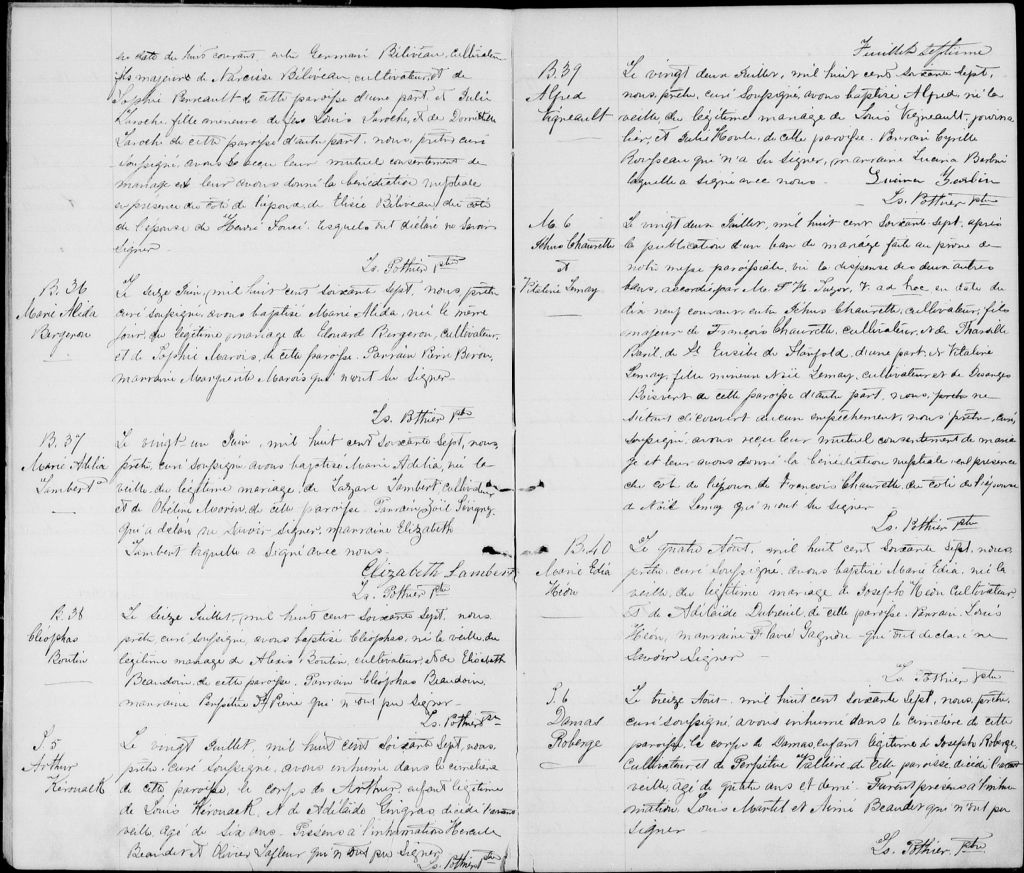 en date du huit courant, entre Germain Béliveau, cultivateur
fils majeur de Narcisse Béliveau, cultivateur, et de
Sophie Perreault de cette paroisse d'une part et Julie
Laroche fille mineure de feu Louis Laroche, et de Domitille
Laroche de cette paroisse d'autre part, nous, prêtre curé
soussigné avons reçu leur mutuel consentement de
mariage et leur avons donné la bénédiction nuptiale
en présence du coté de l'époux, de Elisée Béliveau, du coté
de l'épouse de Henri lesquels ont déclaré ne savoir
signer.
Ls. Pothier Ptre
B. 36
Marie Alida
Bergeron
Le seize Juin, mil huit cent soixante sept, nous prêtre
curé soussigné, avons baptisé Marie Alida, née le même
jour, du légitime mariage de Edouard Bergeron, cultivateur,
et de Sophie Marois, de cette paroisse. Parrain Pierre
marraine Marguerite Marois qui n'ont su signer.
Ls. Pothier Ptre
B. 37
Marie Adélia
Lambert
Le vingt un Juin, mil huit cent soixante sept, nous
prêtre, curé soussigné avons baptisé Marie Adélia, née la
veille, du légitime mariage, de Lazare Lambert, cultivateur
et de Obéline Morin, de cette paroisse. Parrain, Joël
qui a déclaré ne savoir signer, marraine Elizabeth
Lambert laquelle a signé avec nous.
Elizabeth Lambert
Ls. Pothier Ptre
B. 38
Cléophas
Boutin
Le seize Juillet, mil huit cent soixante sept, nous
prêtre, curé soussigné, avons baptisé Cléophas, né la veille du
légitime mariage de Alexis Boutin, cultivateur, et de Elisabeth
Beaudoin, de cette paroisse. Parrain Cléophas Beaudoin,
marraine Perpétue St Pierre qui n'ont pu signer.
Ls. Pothier Ptre
S. 5
Arthur
Kérouack
Le vingt Juillet, mil huit cent soixante sept, nous,
prêtre, curé soussigné, avons inhumé dans le cimetière
de cette paroisse, le corps de Arthur, enfant légitime
de Louis Kérouack, et de Adélaïde Gingras, décédé l'avant
veille, agé de six ans. Présens à l'inhumation Hercule
Beaudet et Olivier Lafleur qui n'ont pu signer
Ls. Pothier Ptre
Feuillet septième
B. 39
Alfred
Vigneault
Le vingt deux Juillet, mil huit cent soixante sept,
nous, prêtre, curé soussigné, avons baptisé Alfred, né la
veille du légitime mariage de Louis Vigneault, journa-
lier, et Julie Houle de cette paroisse. Parrain Cyrille
Rousseau qui n'a su signer, marraine Lucina
laquelle a signé avec nous.
Lucina
Ls. Pothier Ptre
M. 6
Chaurette
et
Vitaline Lemay
Le vingt deux Juillet, mil huit cent soixante sept, après
la publication d'un ban de mariage faite au prône de
notre messe paroissiale, vu la dispense des deux autres
bans, accordée par M. ad hoc en date du
dix neuf courant, entre Chaurette, cultivateur, fils
majeur de François Chaurette, cultivateur, et de Tharsille
Baril, de St Eusèbe de Stanfold, d'une part, et Vitaline
Lemay, fille mineure Noël Lemay, cultivateur et de Désanges
Boisvert de cette paroisse d'autre part, nous, prêtre ne
s'étant découvert aucun empêchement, nous prêtre, curé,
soussigné, avons reçu leur mutuel consentement de maria-
ge et leur avons donné la bénédiction nuptiale en présence
du coté de l'époux, de François Chaurette, du coté de l'épouse
de Noël Lemay qui n'ont su signer
Ls. Pothier Ptre
B. 40
Marie Edia
Héon
Le quatre Août, mil huit cent soixante sept, nous
prêtre, curé soussigné, avons baptisé Marie Edia, née la
veille, du légitime mariage de Joseph Héon, cultivateur,
et de Adélaïde Dubreuil de cette paroisse. Parrain Louis
Héon, marraine Flavie Gagnon qui ont déclaré ne
savoir signer
Ls. Pothier Ptre
S. 6
Damas
Roberge
Le treize Août, mil huit cent soixante sept, nous, prêtre,
curé soussigné, avons inhumé dans le cimetière de cette
paroisse, le corps de Damas, enfant légitime de Joseph Roberge,
cultivateur, et de Perpétue Vallière, de cette paroisse, décédé l'avant
veille, agé de quatre ans et demi. Furent présens à l'inhu-
mation, Louis Martel et Beaudet qui n'ont pu
signer
Ls. Pothier, Ptre